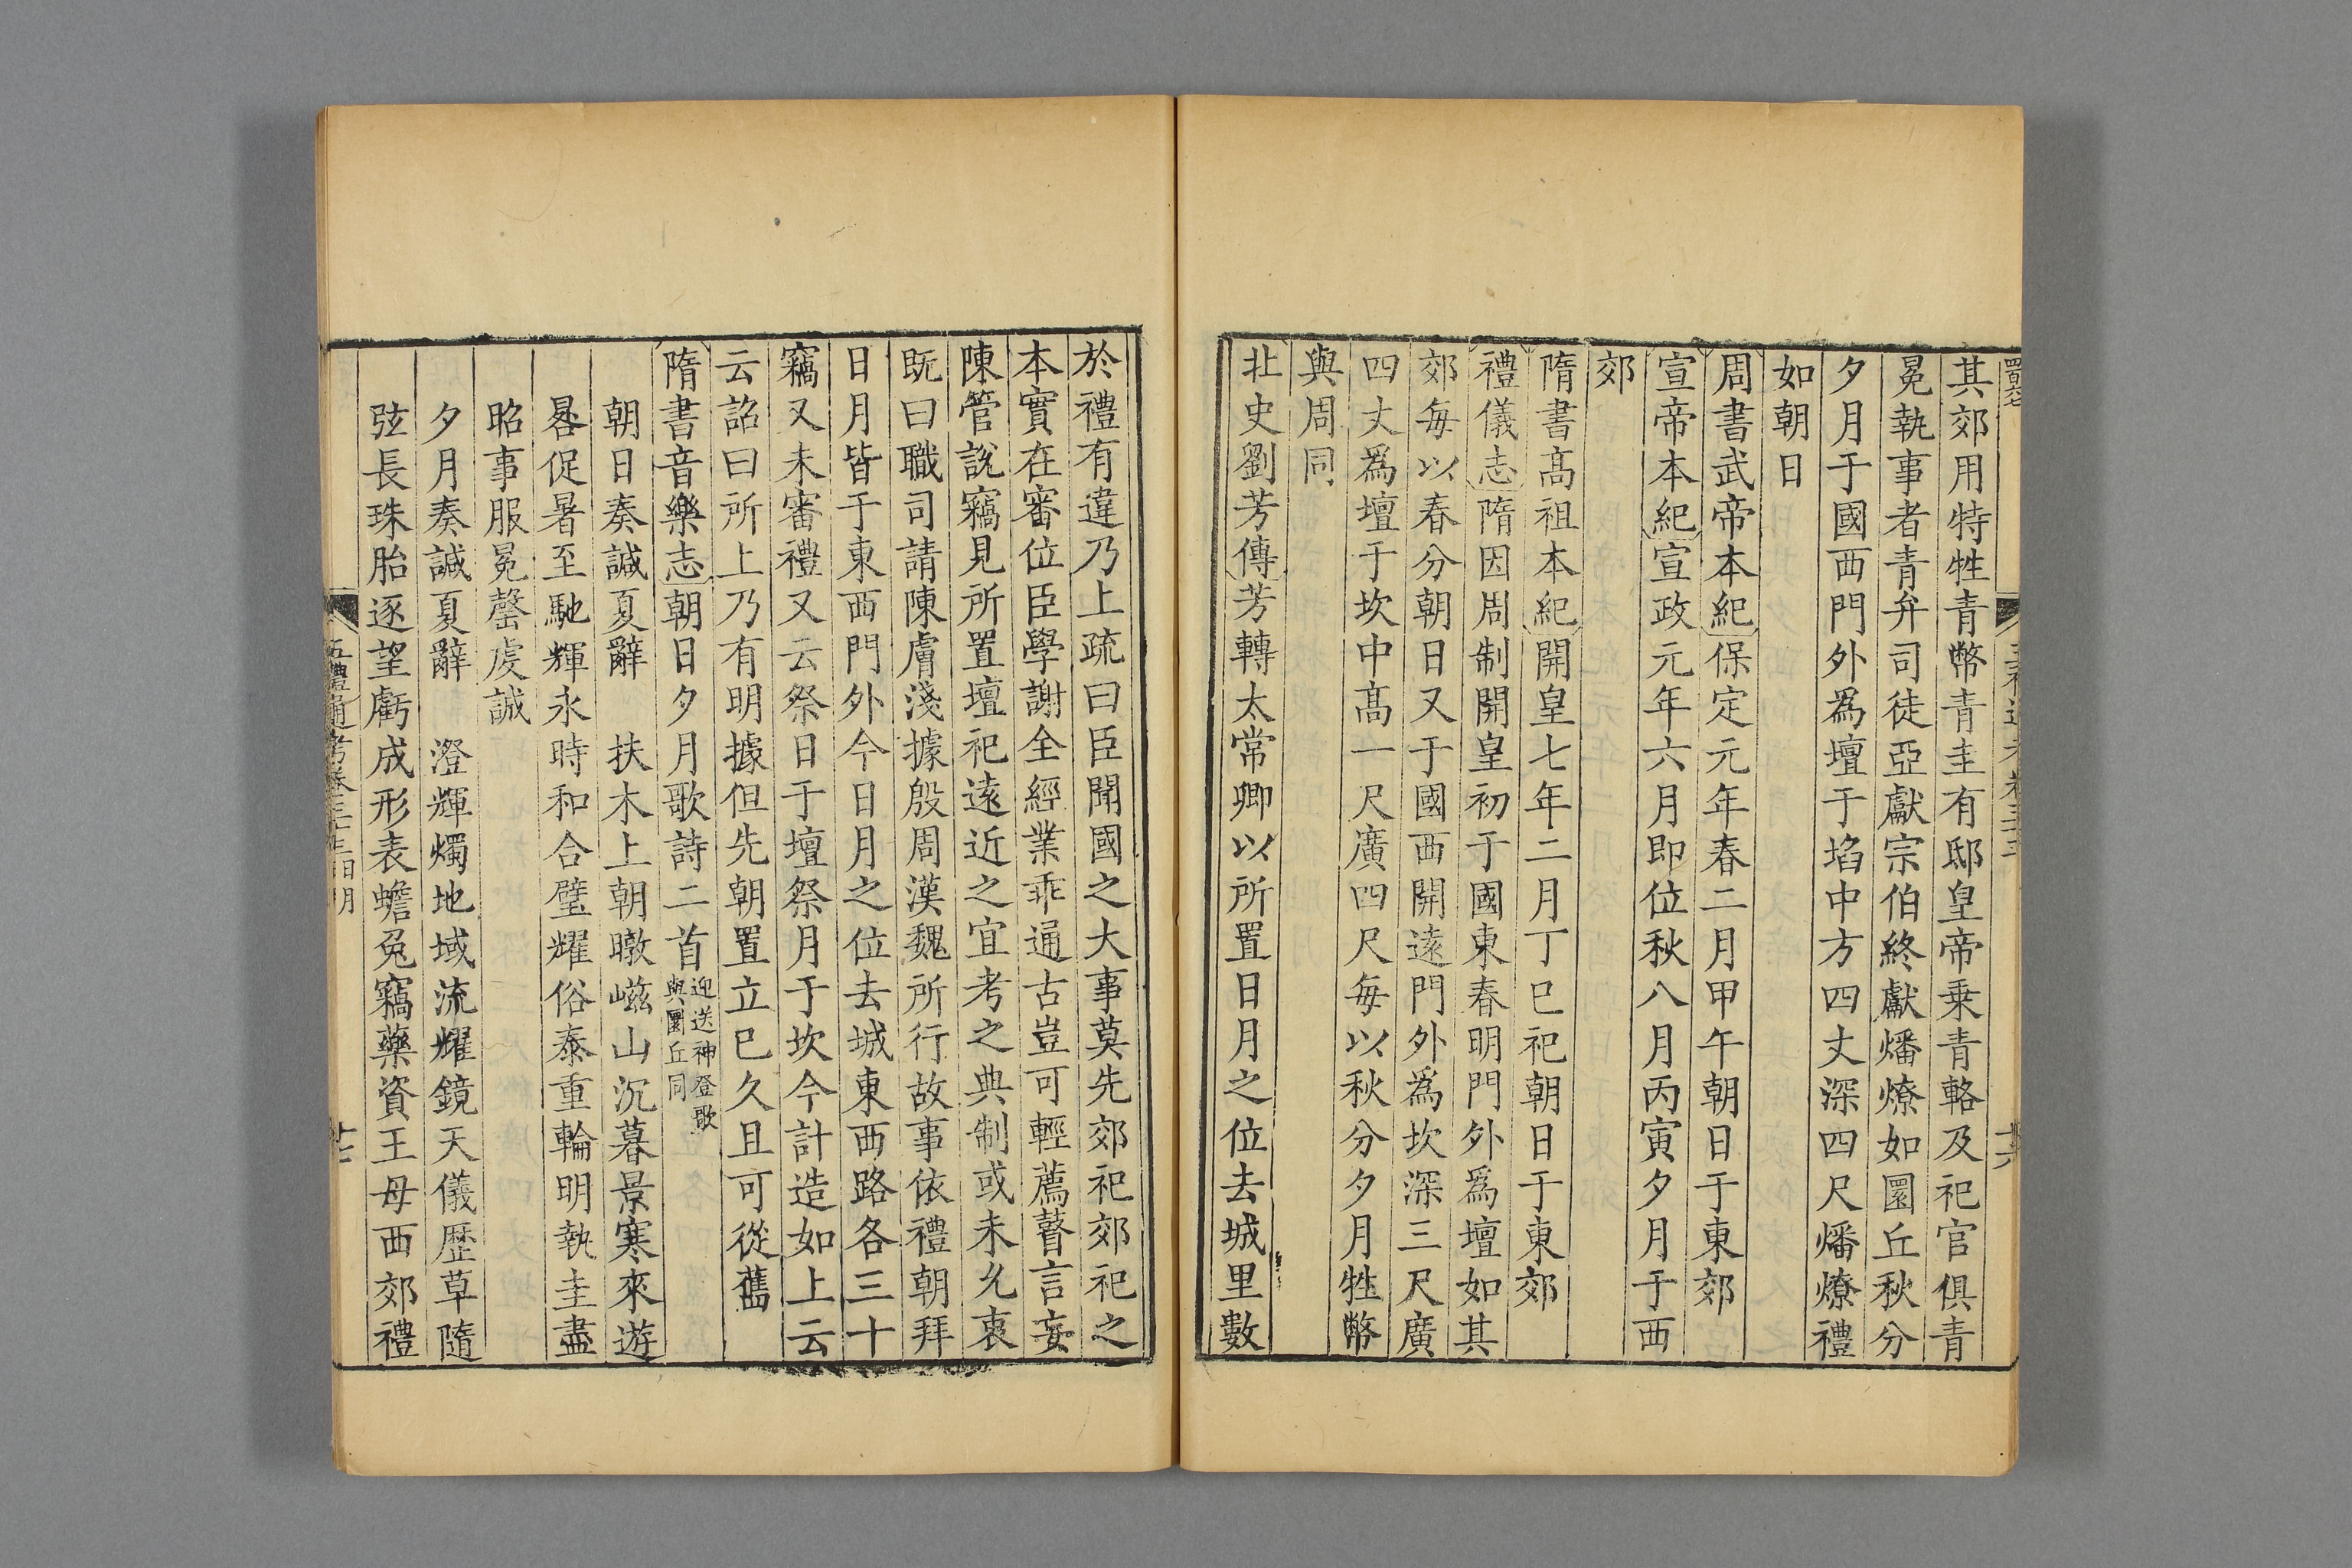 其郊用特牲青幣青圭有邸皇帝乗青輅及祀官俱青
冕執事者青弁司徒亞獻宗伯終獻燔燎如圜丘秋分
夕月于國西門外爲壇于埳中方四丈深四尺燔燎禮
如朝日
周書武帝本紀保定元年春二月甲午朝日于東郊
宣帝本紀宣政元年六月即位秋八月丙寅夕月于西
郊
隋書髙祖本紀開皇七年二月丁巳祀朝日于東郊
禮儀志隋因周制開皇初于國東春明門外爲壇如其
郊每以春分朝日又于國西開遠門外爲坎深三尺廣
四丈爲壇于坎中髙一尺廣四尺每以秋分夕月牲幣
與周同
北史劉芳傳芳轉太常卿以所置日月之位去城里數
於禮有違乃上疏曰臣聞國之大事莫先郊祀郊祀之
本實在審位臣學謝全經業乖通古豈可輕薦瞽言妄
陳管說竊見所置壇祠遠近之宜考之典制或未允衷
既曰職司請陳膚淺據殷周漢魏所行故事依禮朝拜
日月皆于東西門外今日月之位去城東西路各三十
竊又未審禮又云祭日于壇祭月于坎今計造如上云
云詔曰所上乃有明據但先朝置立巳久且可從舊
隋書音樂志朝日夕月歌詩二首迎送神登歌與圜丘同
朝日奏諴夏辭　扶木上朝暾嵫山沉暮景寒來遊
晷促暑至馳輝永時和合璧耀俗泰重輪明執圭盡
昭事服冕罄虔誠
夕月奏諴夏辭　澄輝燭地域流耀鏡天儀歷草隨
弦長珠胎逐望虧成形表蟾兔竊藥資王母西郊禮